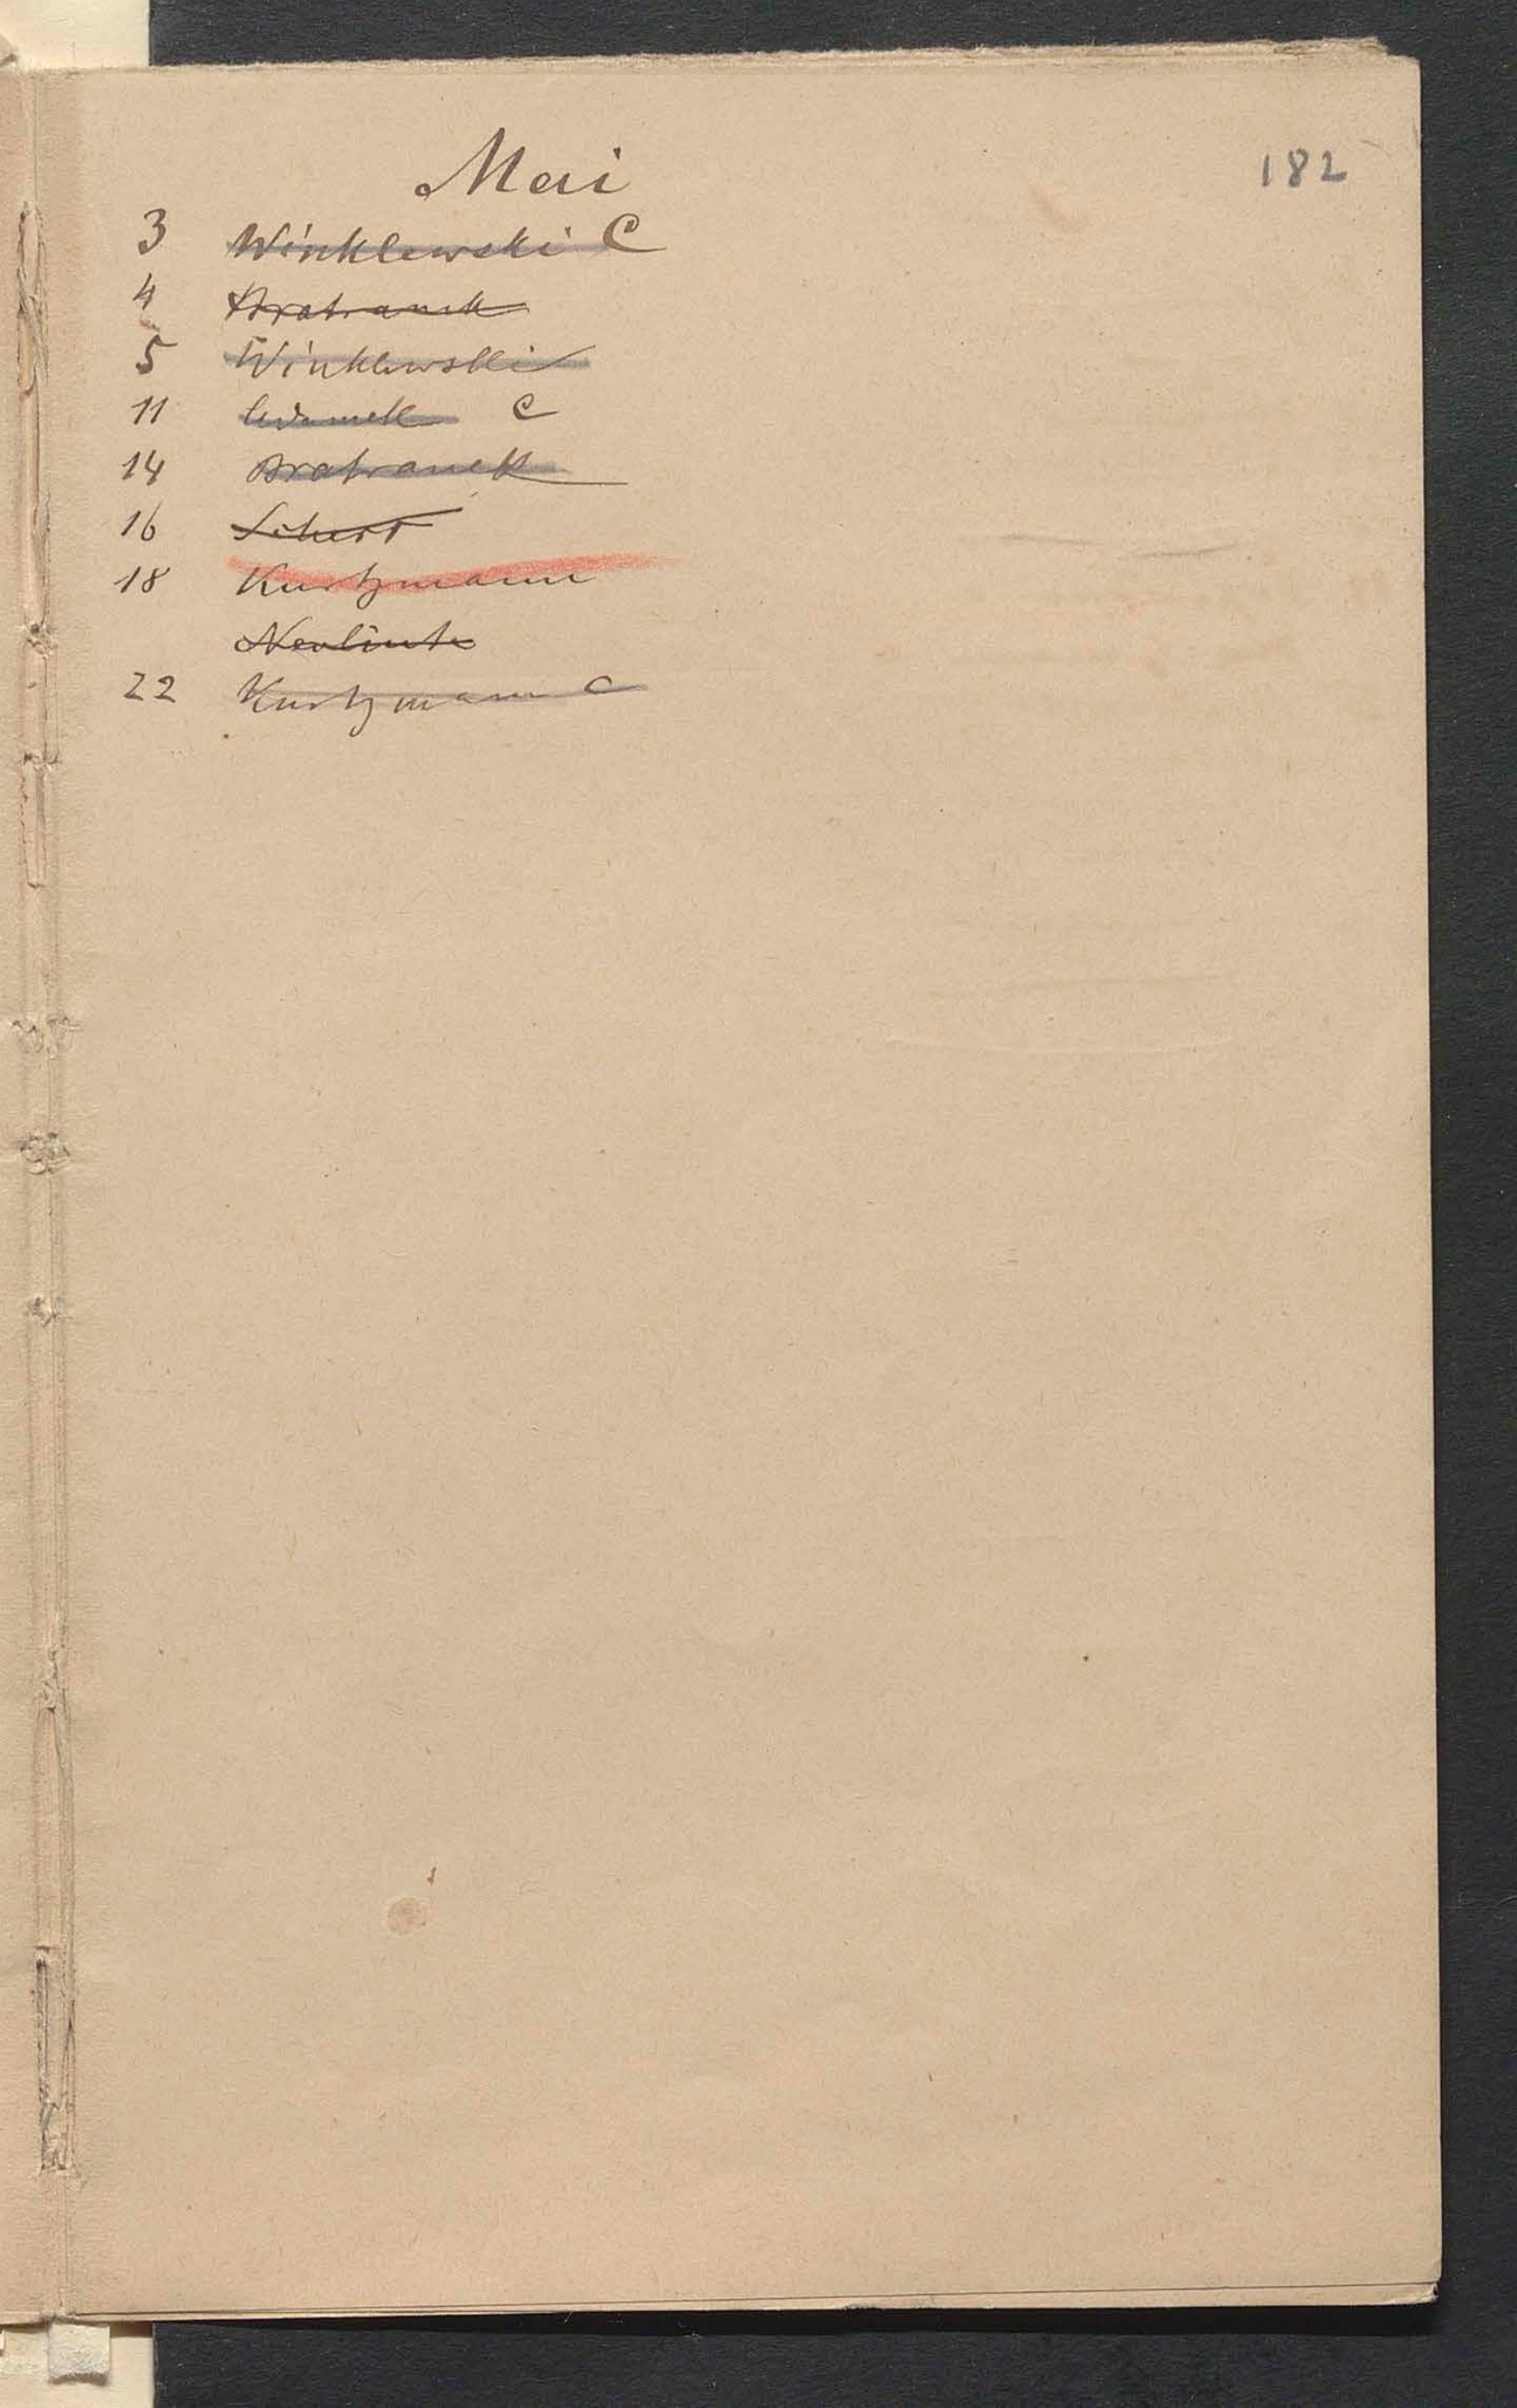 182
Mai
3 Winklewski C
4 Bratranek
5 Winklewski
11 Adamek C
14 Bratranek
16 Scherr
18 Kurtzmann
22 Kurtzmann C